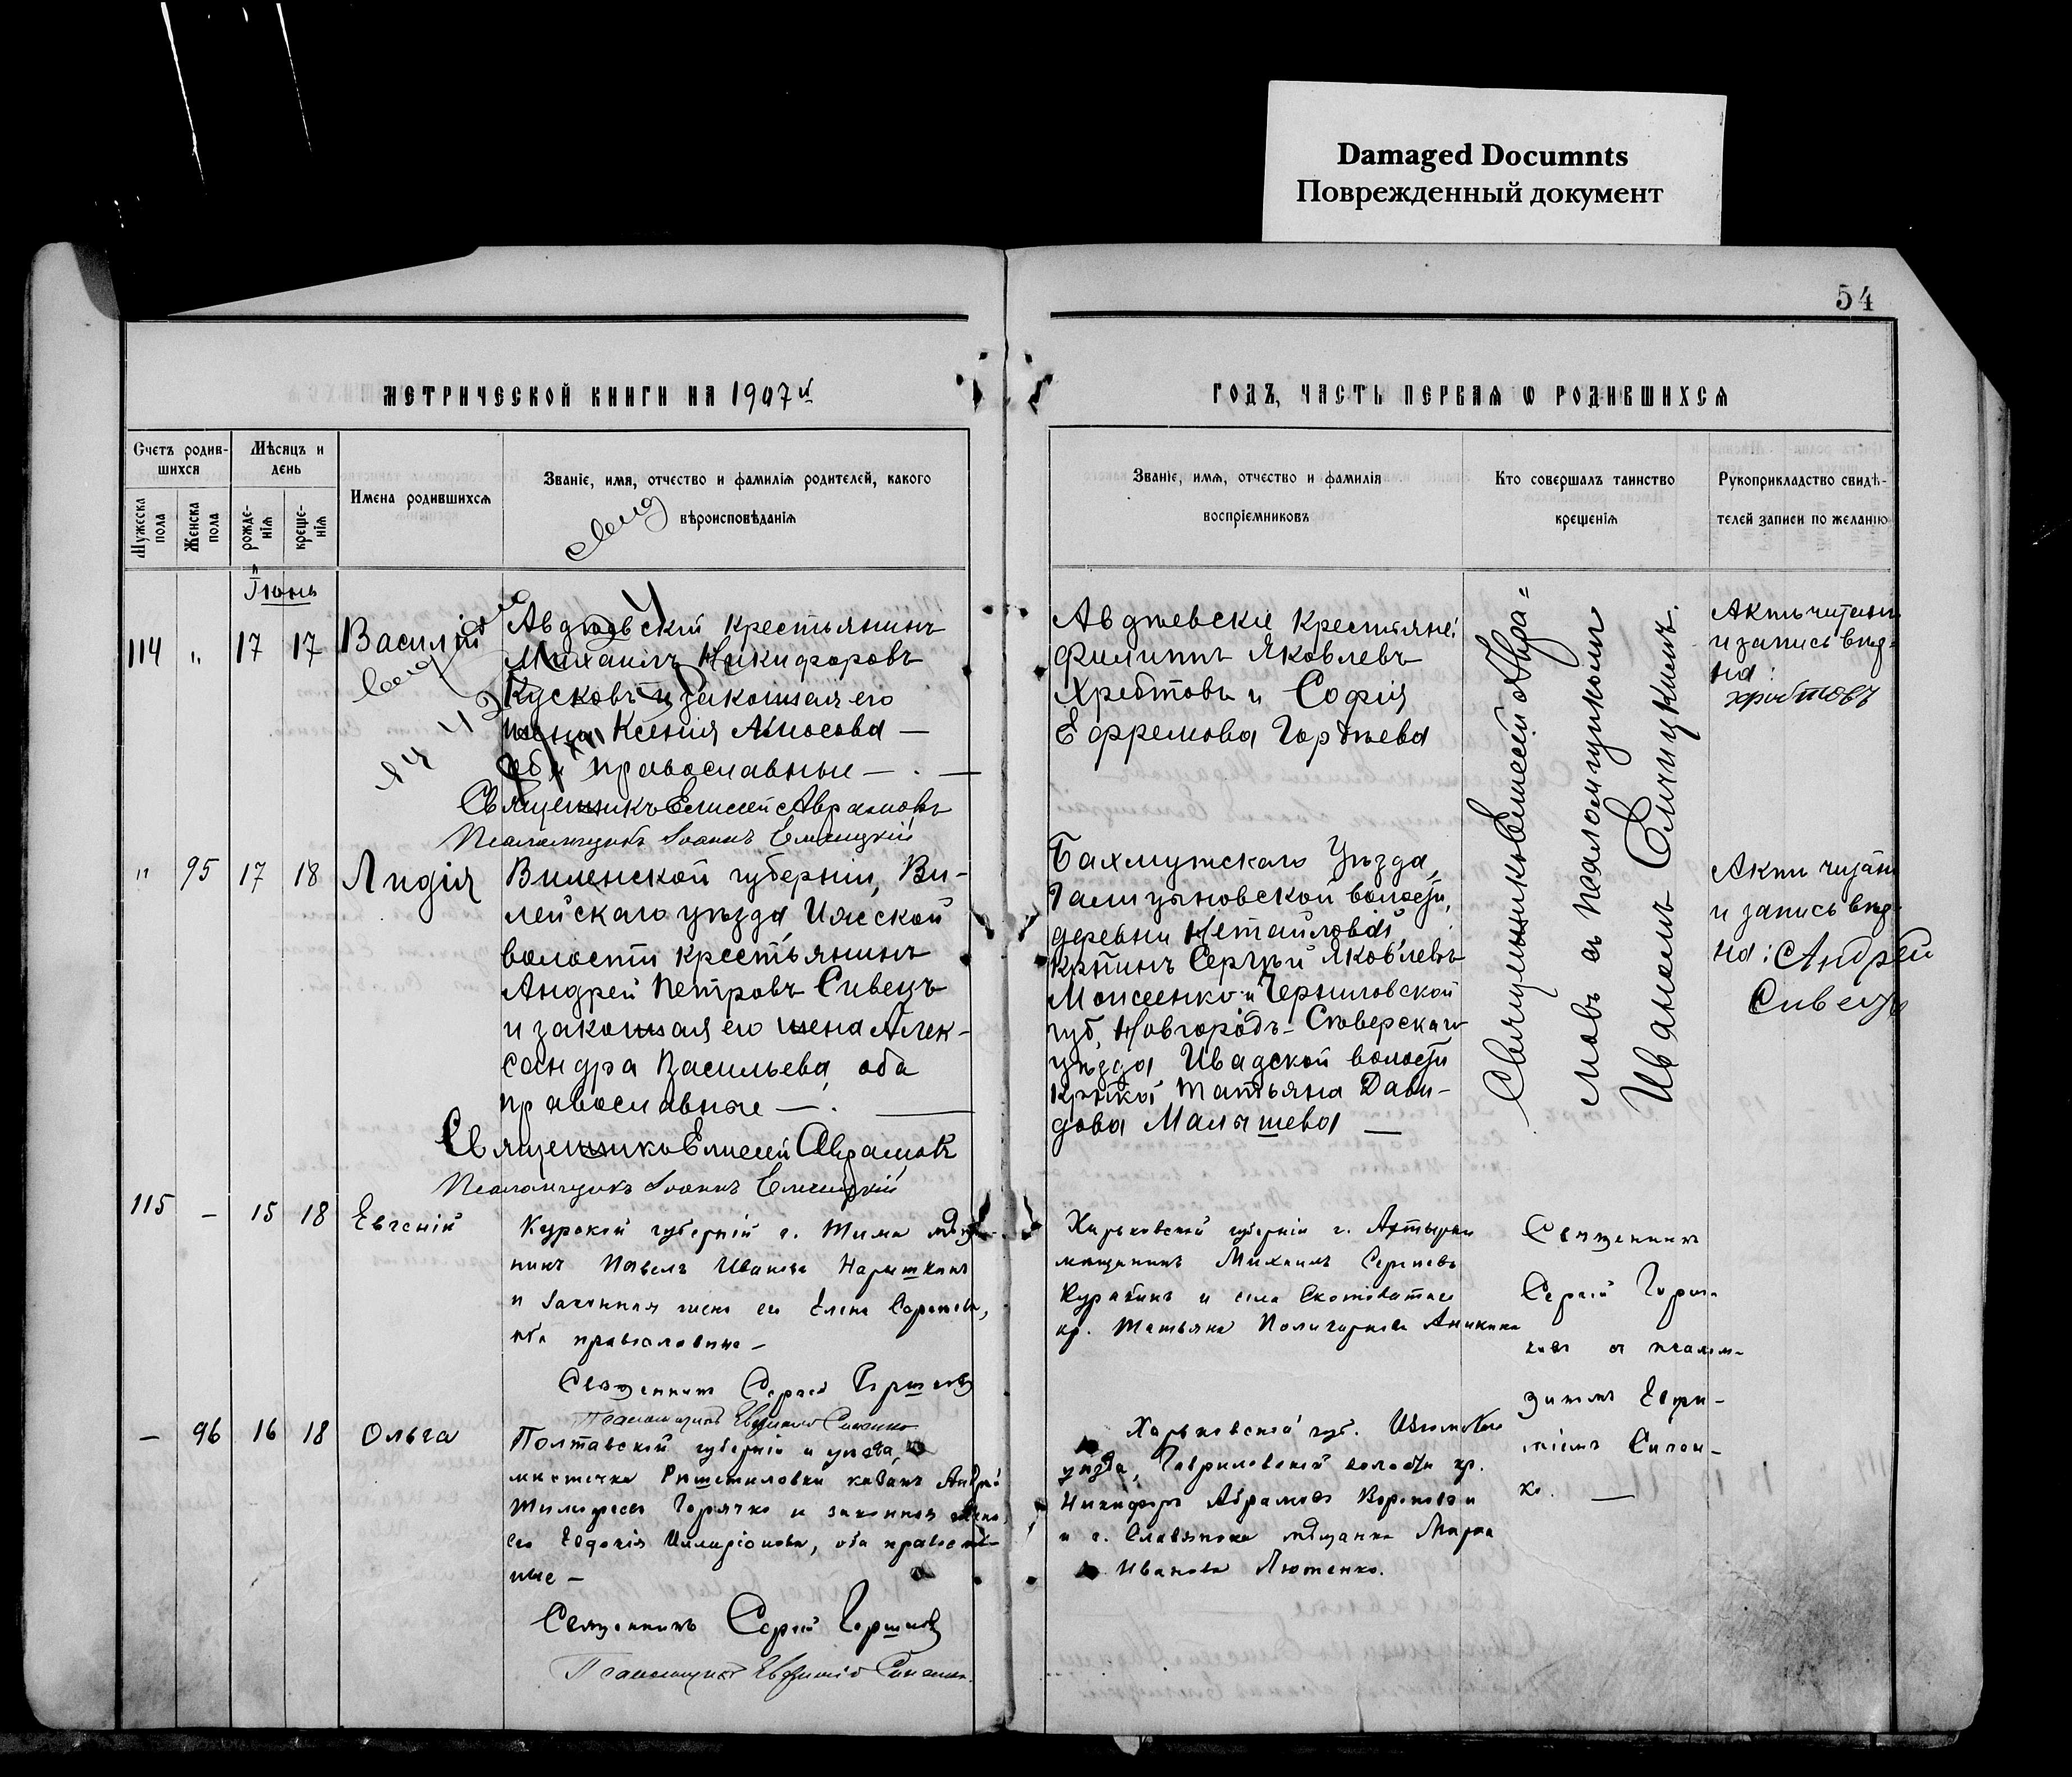 Damaged Documnts
Поврежденный документ
54
МЕТРИЧЕСКОЙ КНИГИ НА 1907 й
ГОДЪ, ЧАСТЬ ПЕРВАЯ Ѡ РОДИВШИХСЯ
Счетъ родив-
шихся
Мѣсяцъ и
день
Мужеска
пола
Женска
пола
рожде-
нія
креще-
нія
Имена родившихся
Званіе, имя, отчество и фамилія родителей, какого
вѣроисповѣданія
Званіе, имя, отчество и фамилія
воспріемниковъ
Кто совершалъ таинство
крещенія
Рукоприкладство свидѣ-
телей записи по желанію
Іюнь
114 " 17 17 Василій
Авдѣевскій крестьянинъ
Михаилъ Никифоровъ
Кусковъ и законная его
жена Ксенія Амосова —
оба православные —
Священникъ Елисей Авраамовъ
Псаломщикъ Іоаннъ Елчицкій
Авдѣевскіе крестьяне:
Филиппъ Яковлевъ
Хребтовъ и Софія
Ефремова Гордѣева
Священникъ Елисей Авра=
мовъ съ псаломщикомъ
Иваномъ Елчицкимъ.
Актъ читанъ
и запись вѣр=
на:
Хребтовъ
" 95 17 18 Лидія
Виленской губерніи, Ви-
лейскаго уѣзда, Ижской
волости крестьянинъ
Андрей Петровъ Сивецъ
и законная его жена Алек-
сандра Васильева, оба
православные —
Священникъ Елисей Авраамовъ
Псаломщикъ Іоаннъ Елчицкій
Бахмутскаго уѣзда,
Галицыновской волости,
деревни Нетайловой,
кр-нинъ Сергѣй Яковлевъ
Моисеенко и Черниговской
губ. Новгородъ-Сѣверскаго
уѣзда Ивадской волости
кр-нка Татьяна Дави-
дова Малышева —
Актъ читанъ
и запись вѣр-
на: Андрей
Сивецъ
115 — 15 18 Евгеній
Курской губерніи г. Тима мѣща-
нинъ Павелъ Ивановъ Нарышкинъ
и законная жена его Елена Сергѣева,
оба православные —
Священникъ Сергій
Псаломщикъ Евфимій
Харьковской губерніи г. Ахтырки
мѣщанинъ Михаилъ Сергѣевъ
Курабинъ и села Скотоватаго
кр. Татьяна Поликарпова Аникина
Священникъ
Сергій
съ псалом-
щикомъ Евфи-
міемъ
— 96 16 18 Ольга
Полтавской губерніи и уѣзда,
мѣстечка Рѣшетиловки козакъ Андрей
Тимофеевъ Горячко и законная жена
его Евдокія Илларіонова, оба православ-
ные —
Священникъ Сергій
Псаломщикъ Евфимій
Харьковской губ. Изюмскаго
уѣзда, Гавриловской волости кр.
Никифоръ Абрамовъ
и г. Славянска мѣщанка Марѳа
Иванова Лютенко.